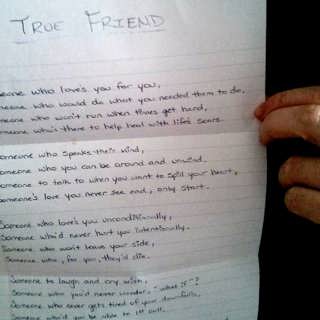 TRUE FRIEND
meone who loves you for you,
meone who would do what you needed them to do,
meone who won't run when times get hard,
meone who's there to help heal with life's scars.
omeone who speaks their mind,
omeone who you can be around and unwind.
omeone to talk to when you want to spill your heart,
omeone's love you never see end, only start.
Someone who loves you unconditionally,
Someone who'd never hurt you intentionally.
Someone who won't leave your side,
Someone who, for you, they'd die.
Someone to laugh and cry with,
Someone who you'd never wonder - "what if"?
Someone who never gets tired of your downfalls,
Someone who'd you be able to tell all.